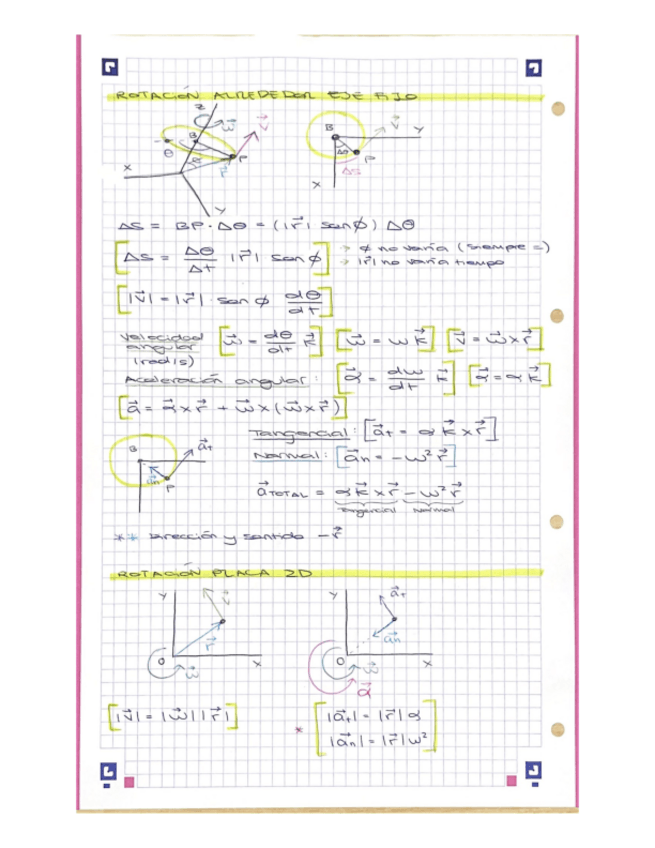 ROTACIÓN ALREDEDOR EJE FIJO
Z
ω⃗
v⃗
B
θ
P
r⃗
X
Y
B
Y
v⃗
Δθ
P
ΔS
X
ΔS = BP·Δθ = (|r⃗| senϕ) Δθ
[ΔS = Δθ/Δt |r⃗| sen ϕ] → ϕ no varía (siempre =)
→ |r⃗| no varía tiempo
[|v⃗| = |r⃗| · sen ϕ dθ/dt]
Velocidad angular (rad/s) [ω⃗ = dθ/dt k⃗] [ω⃗ = ω k⃗] [v⃗ = ω⃗ x r⃗]
Aceleración angular: [α⃗ = dω/dt k⃗] [α⃗ = α k⃗]
[a⃗ = α⃗ x r⃗ + ω⃗ x (ω⃗ x r⃗)]
B
a⃗t
a⃗n
P
Tangencial: [a⃗t = α k⃗ x r⃗]
Normal: [a⃗n = -ω² r⃗]
a⃗TOTAL = α k⃗ x r⃗ - ω² r⃗
Tangencial Normal
** Dirección y sentido -r⃗
ROTACIÓN PLACA 2D
Y
v⃗
r⃗
O
ω⃗
X
Y
a⃗t
a⃗n
O
ω⃗
X
α⃗
[|v⃗| = |ω⃗| |r⃗|]
* [|a⃗t| = |r⃗| α
|a⃗n| = |r⃗| ω²]